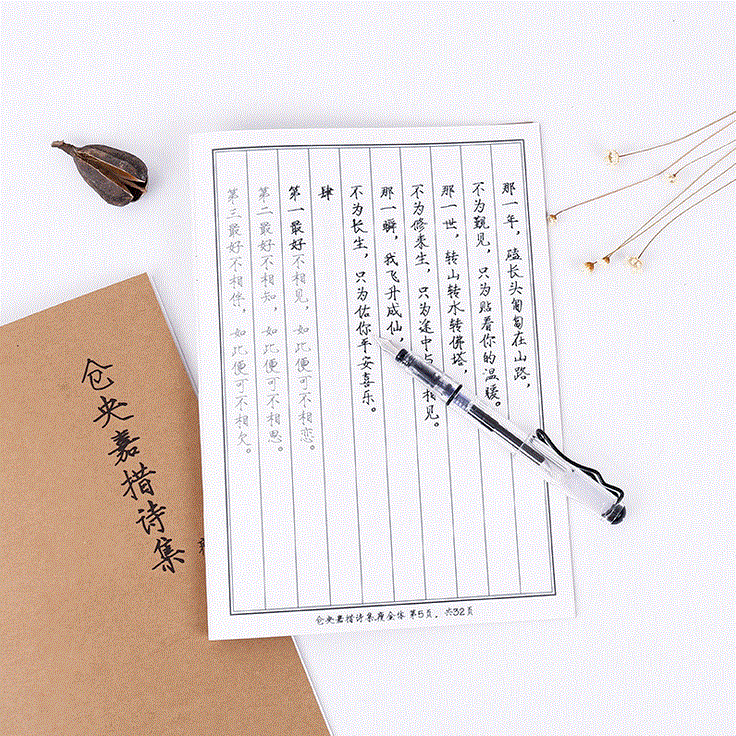 那一年，磕长头匍匐在山路，
不为觐见，只为贴着你的温暖。
那一世，转山转水转佛塔，
不为修来生，只为途中与相见。
那一瞬，我飞升成仙，
不为长生，只为佑你平安喜乐。
肆
第一最好不相见，如此便可不相恋。
第二最好不相知，如此便可不相思。
第三最好不相伴，如此便可不相欠。
仓央嘉措诗集瘦金体 第5页，共32页
仓央嘉措诗集